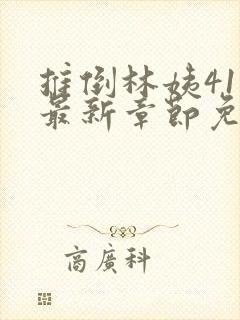 推倒林姨41
最新章節免
商廣科